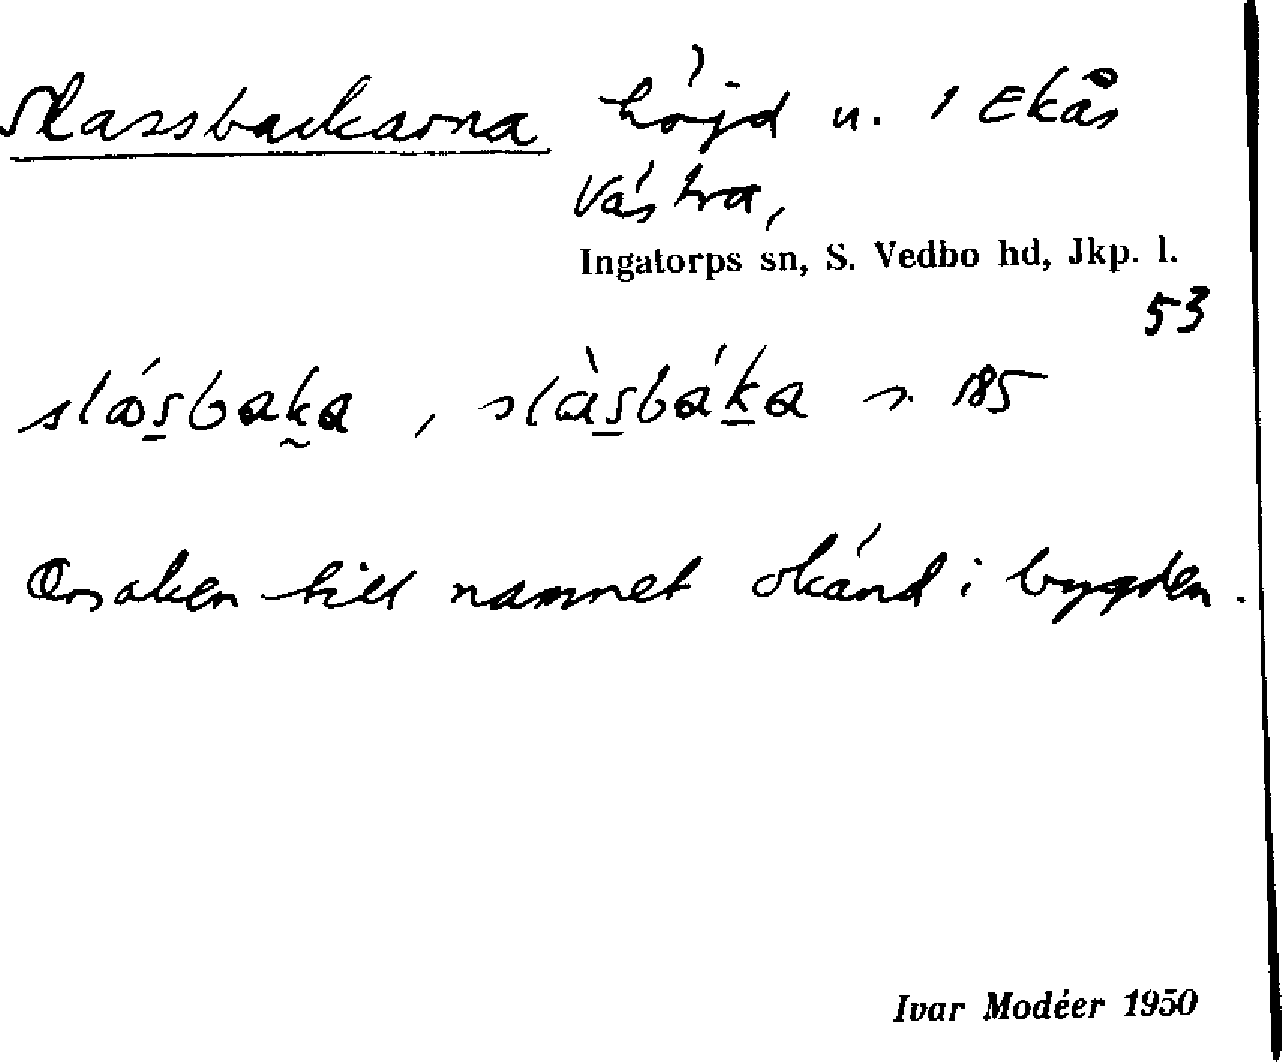 Slassbackarna höjd u. 1 Ekås
Västra,
Ingatorps sn, S. Vedbo hd, Jkp. l.
53
slásbaka, slàsbáka s. 185
Orsaken till namnet okänd i bygden.
Ivar Modéer 1950